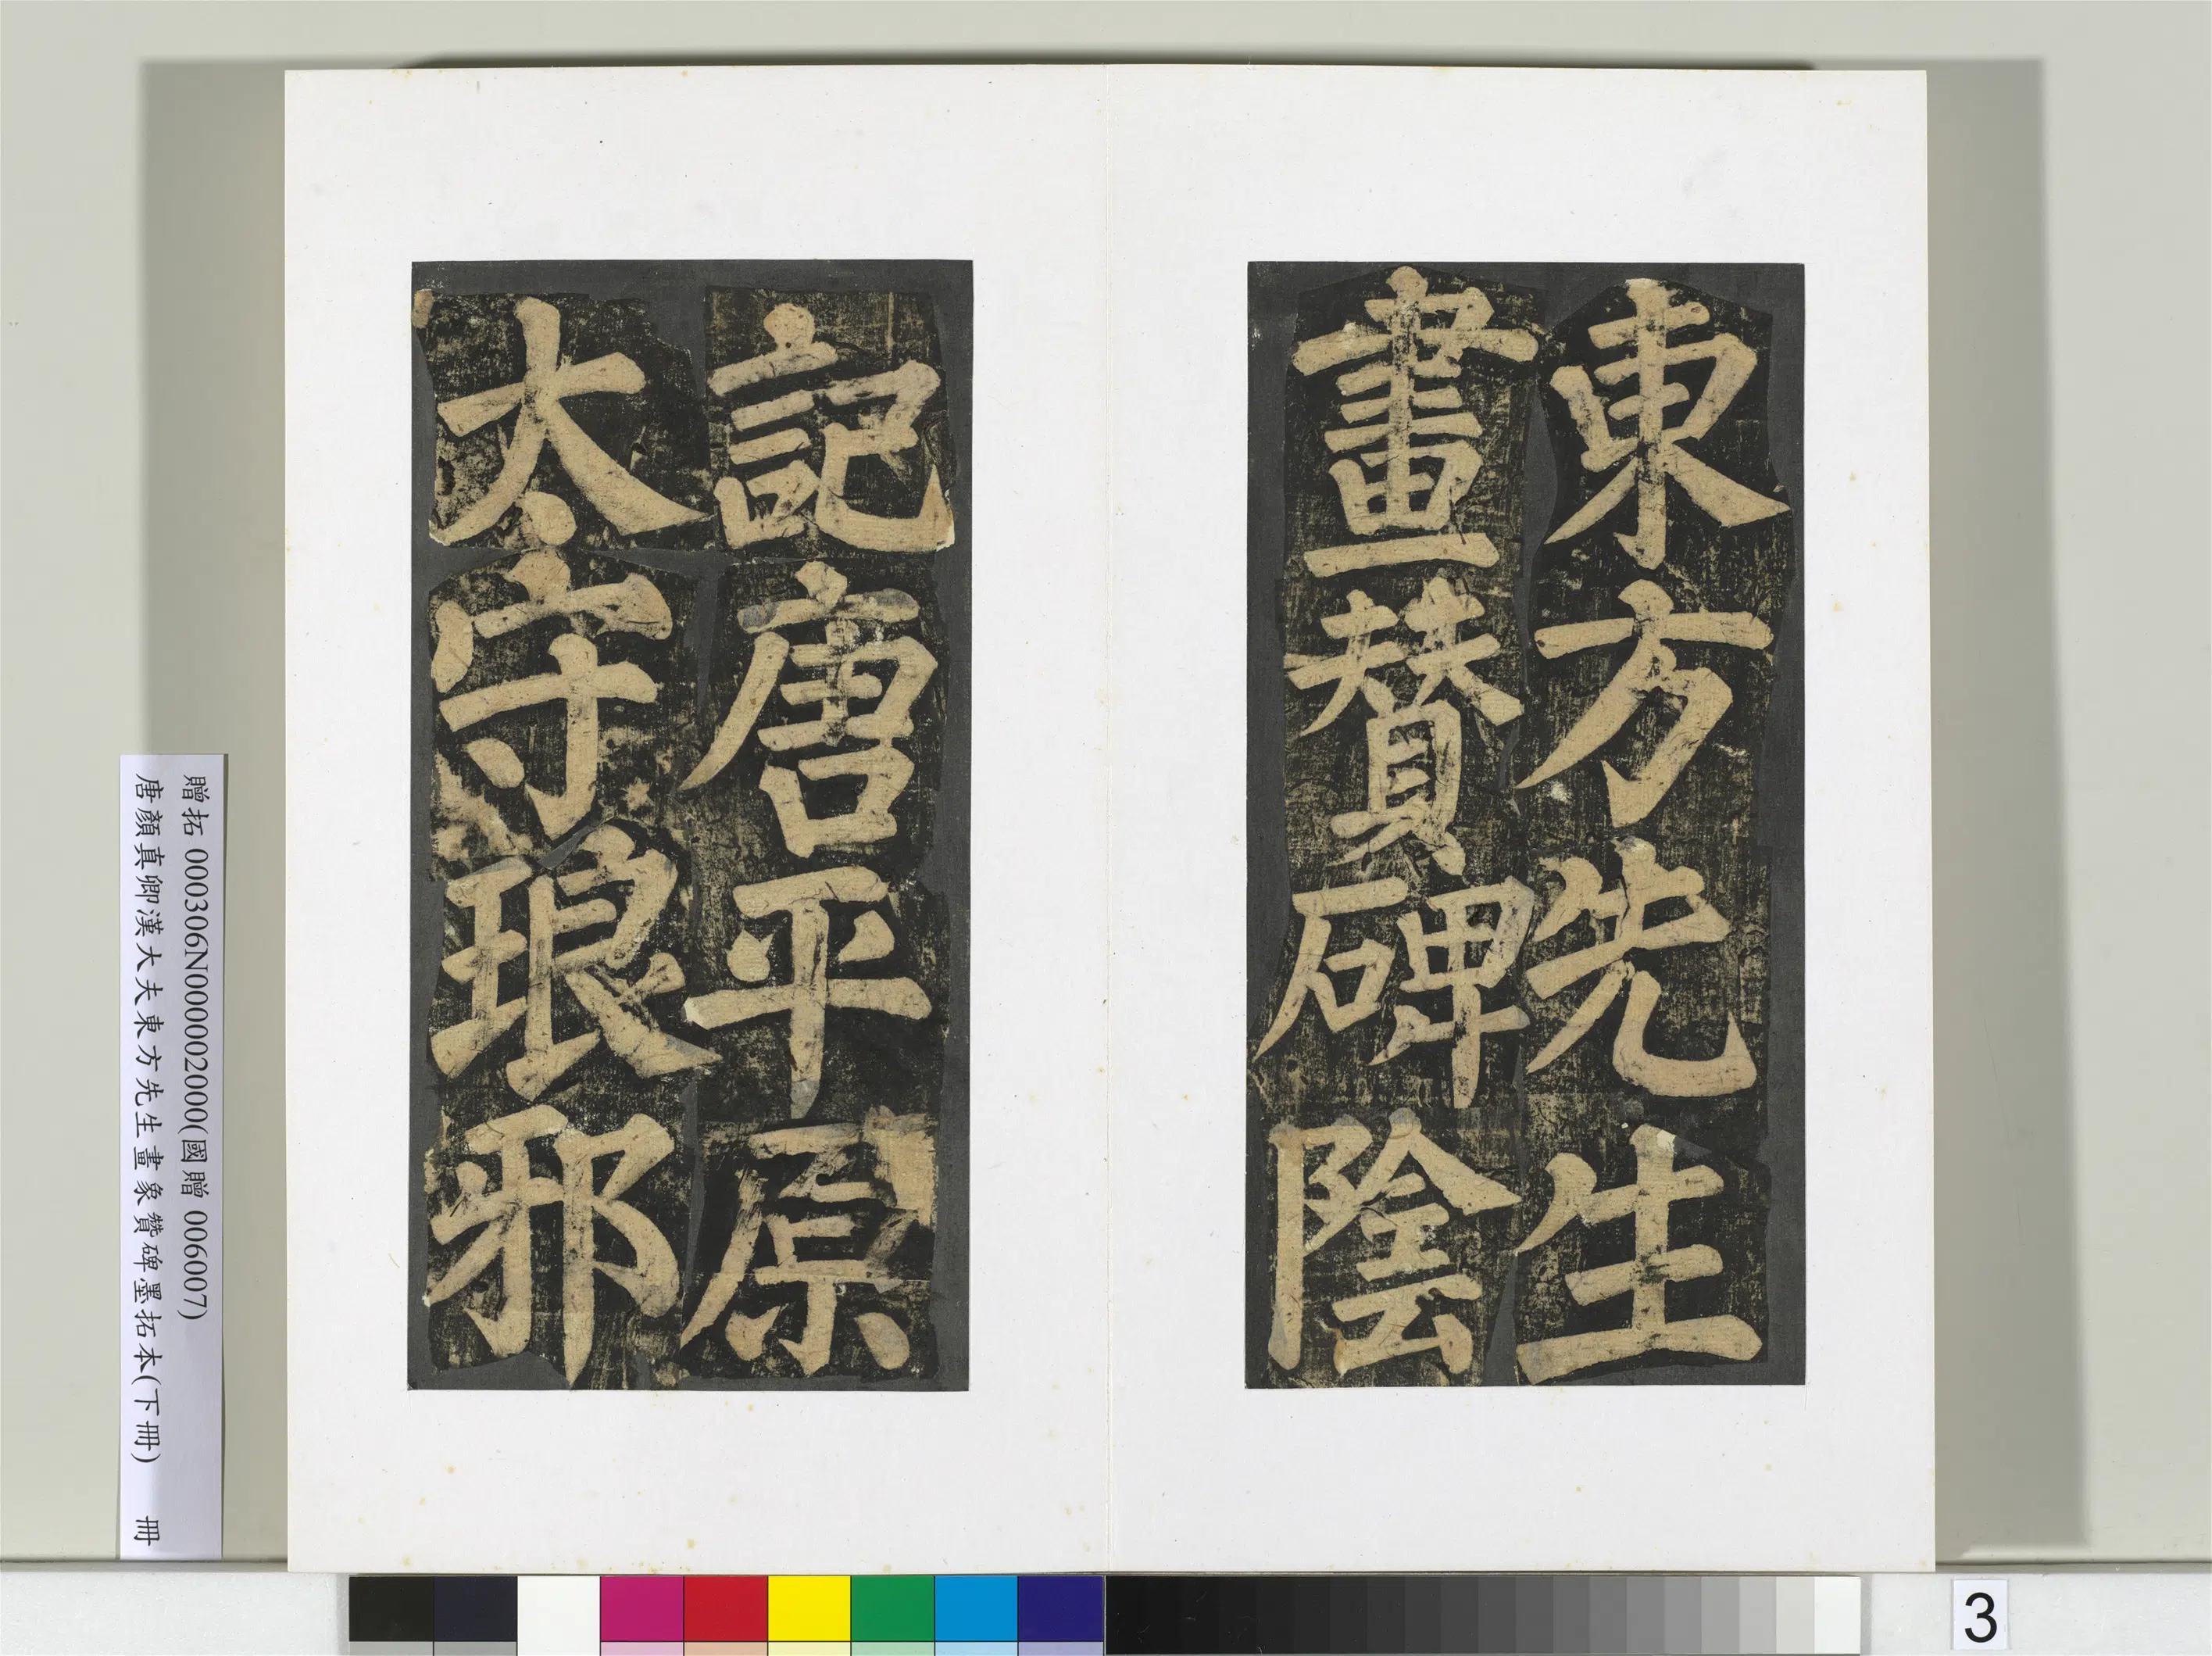 東方先生
畫賛碑陰
記唐平原
太守琅邪
贈拓 000306N000002000(國贈 006007)
唐顏真卿漢大夫東方先生畫象贊碑墨拓本(下冊) 冊
3